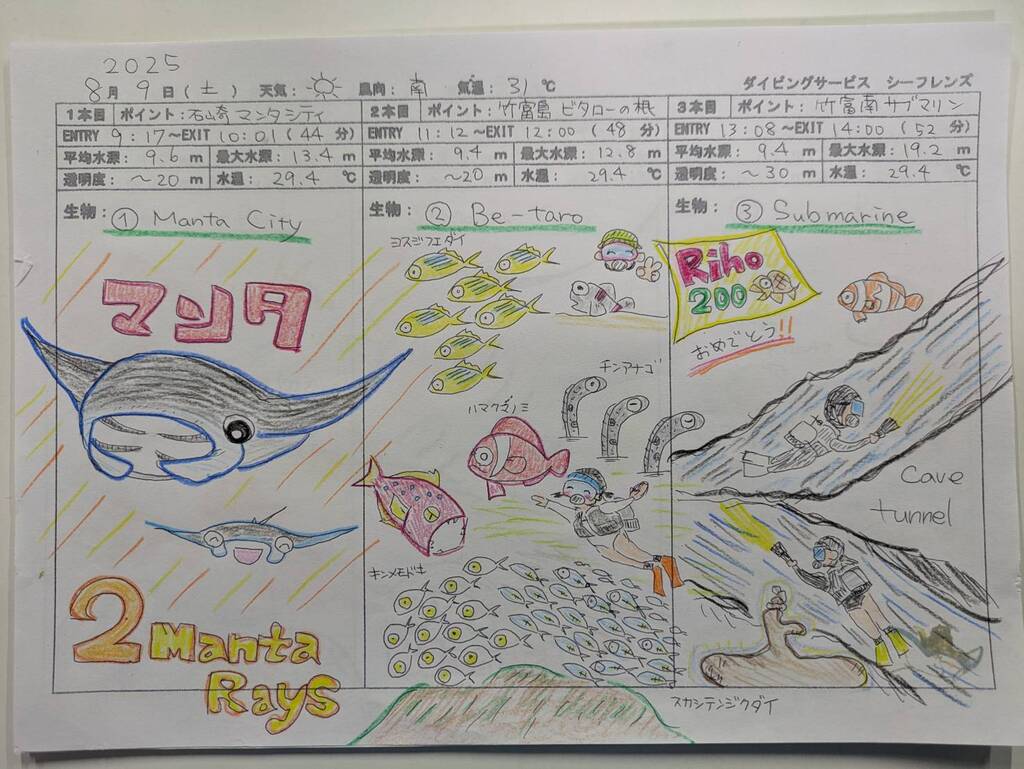 2025
8月 9日(土) 天気: 風向: 南 気温: 31℃ ダイビングサービス シーフレンズ
1本目 ポイント: 石崎マンタシティ
ENTRY 9:17～EXIT 10:01(44分)
平均水深: 9.6 m 最大水深: 13.4 m
透明度: ～20 m 水温: 29.4 ℃
生物: ① Manta City
マンタ
2 Manta
Rays
2本目 ポイント: 竹富島 ビタローの根
ENTRY 11:12～EXIT 12:00(48分)
平均水深: 9.4 m 最大水深: 12.8 m
透明度: ～20 m 水温: 29.4 ℃
生物: ② Be-taro
ヨスジフエダイ
チンアナゴ
ハマクマノミ
キンメモドキ
3本目 ポイント: 竹富南サブマリン
ENTRY 13:08～EXIT 14:00(52分)
平均水深: 9.4 m 最大水深: 19.2 m
透明度: ～30 m 水温: 29.4 ℃
生物: ③ Submarine
Riho
200
おめでとう!!
cave
tunnel
スカシテンジクダイ